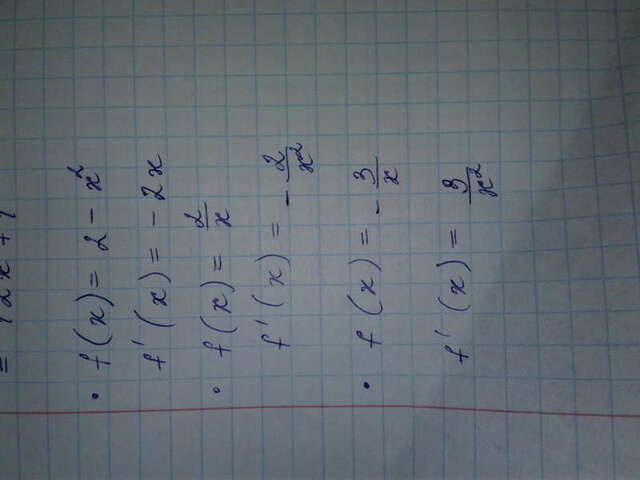 = 12x + 1
• f(x) = 2 - x²
f'(x) = -2x
• f(x) = 2/x
f'(x) = -2/x²
• f(x) = -3/x
f'(x) = 3/x²